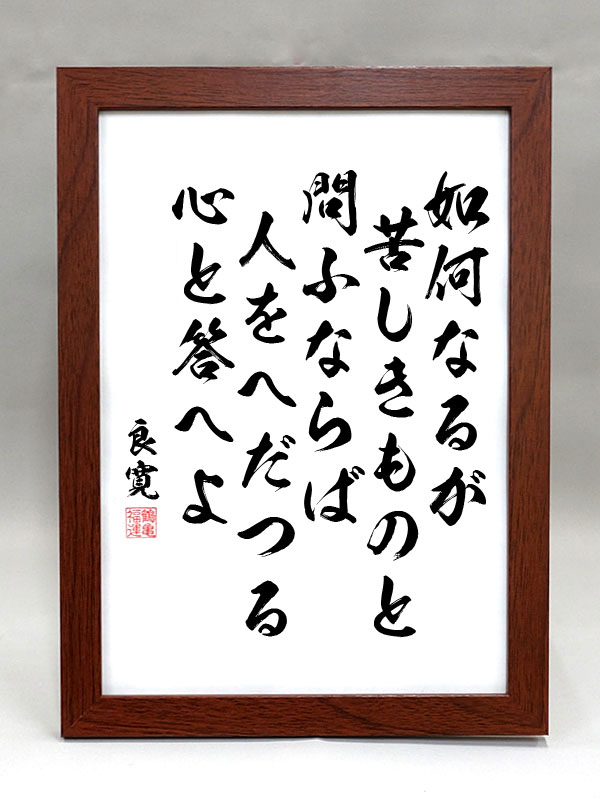 如何なるが
苦しきものと
問ふならば
人をへだつる
心と答へよ
良寛
鶴亀
福運